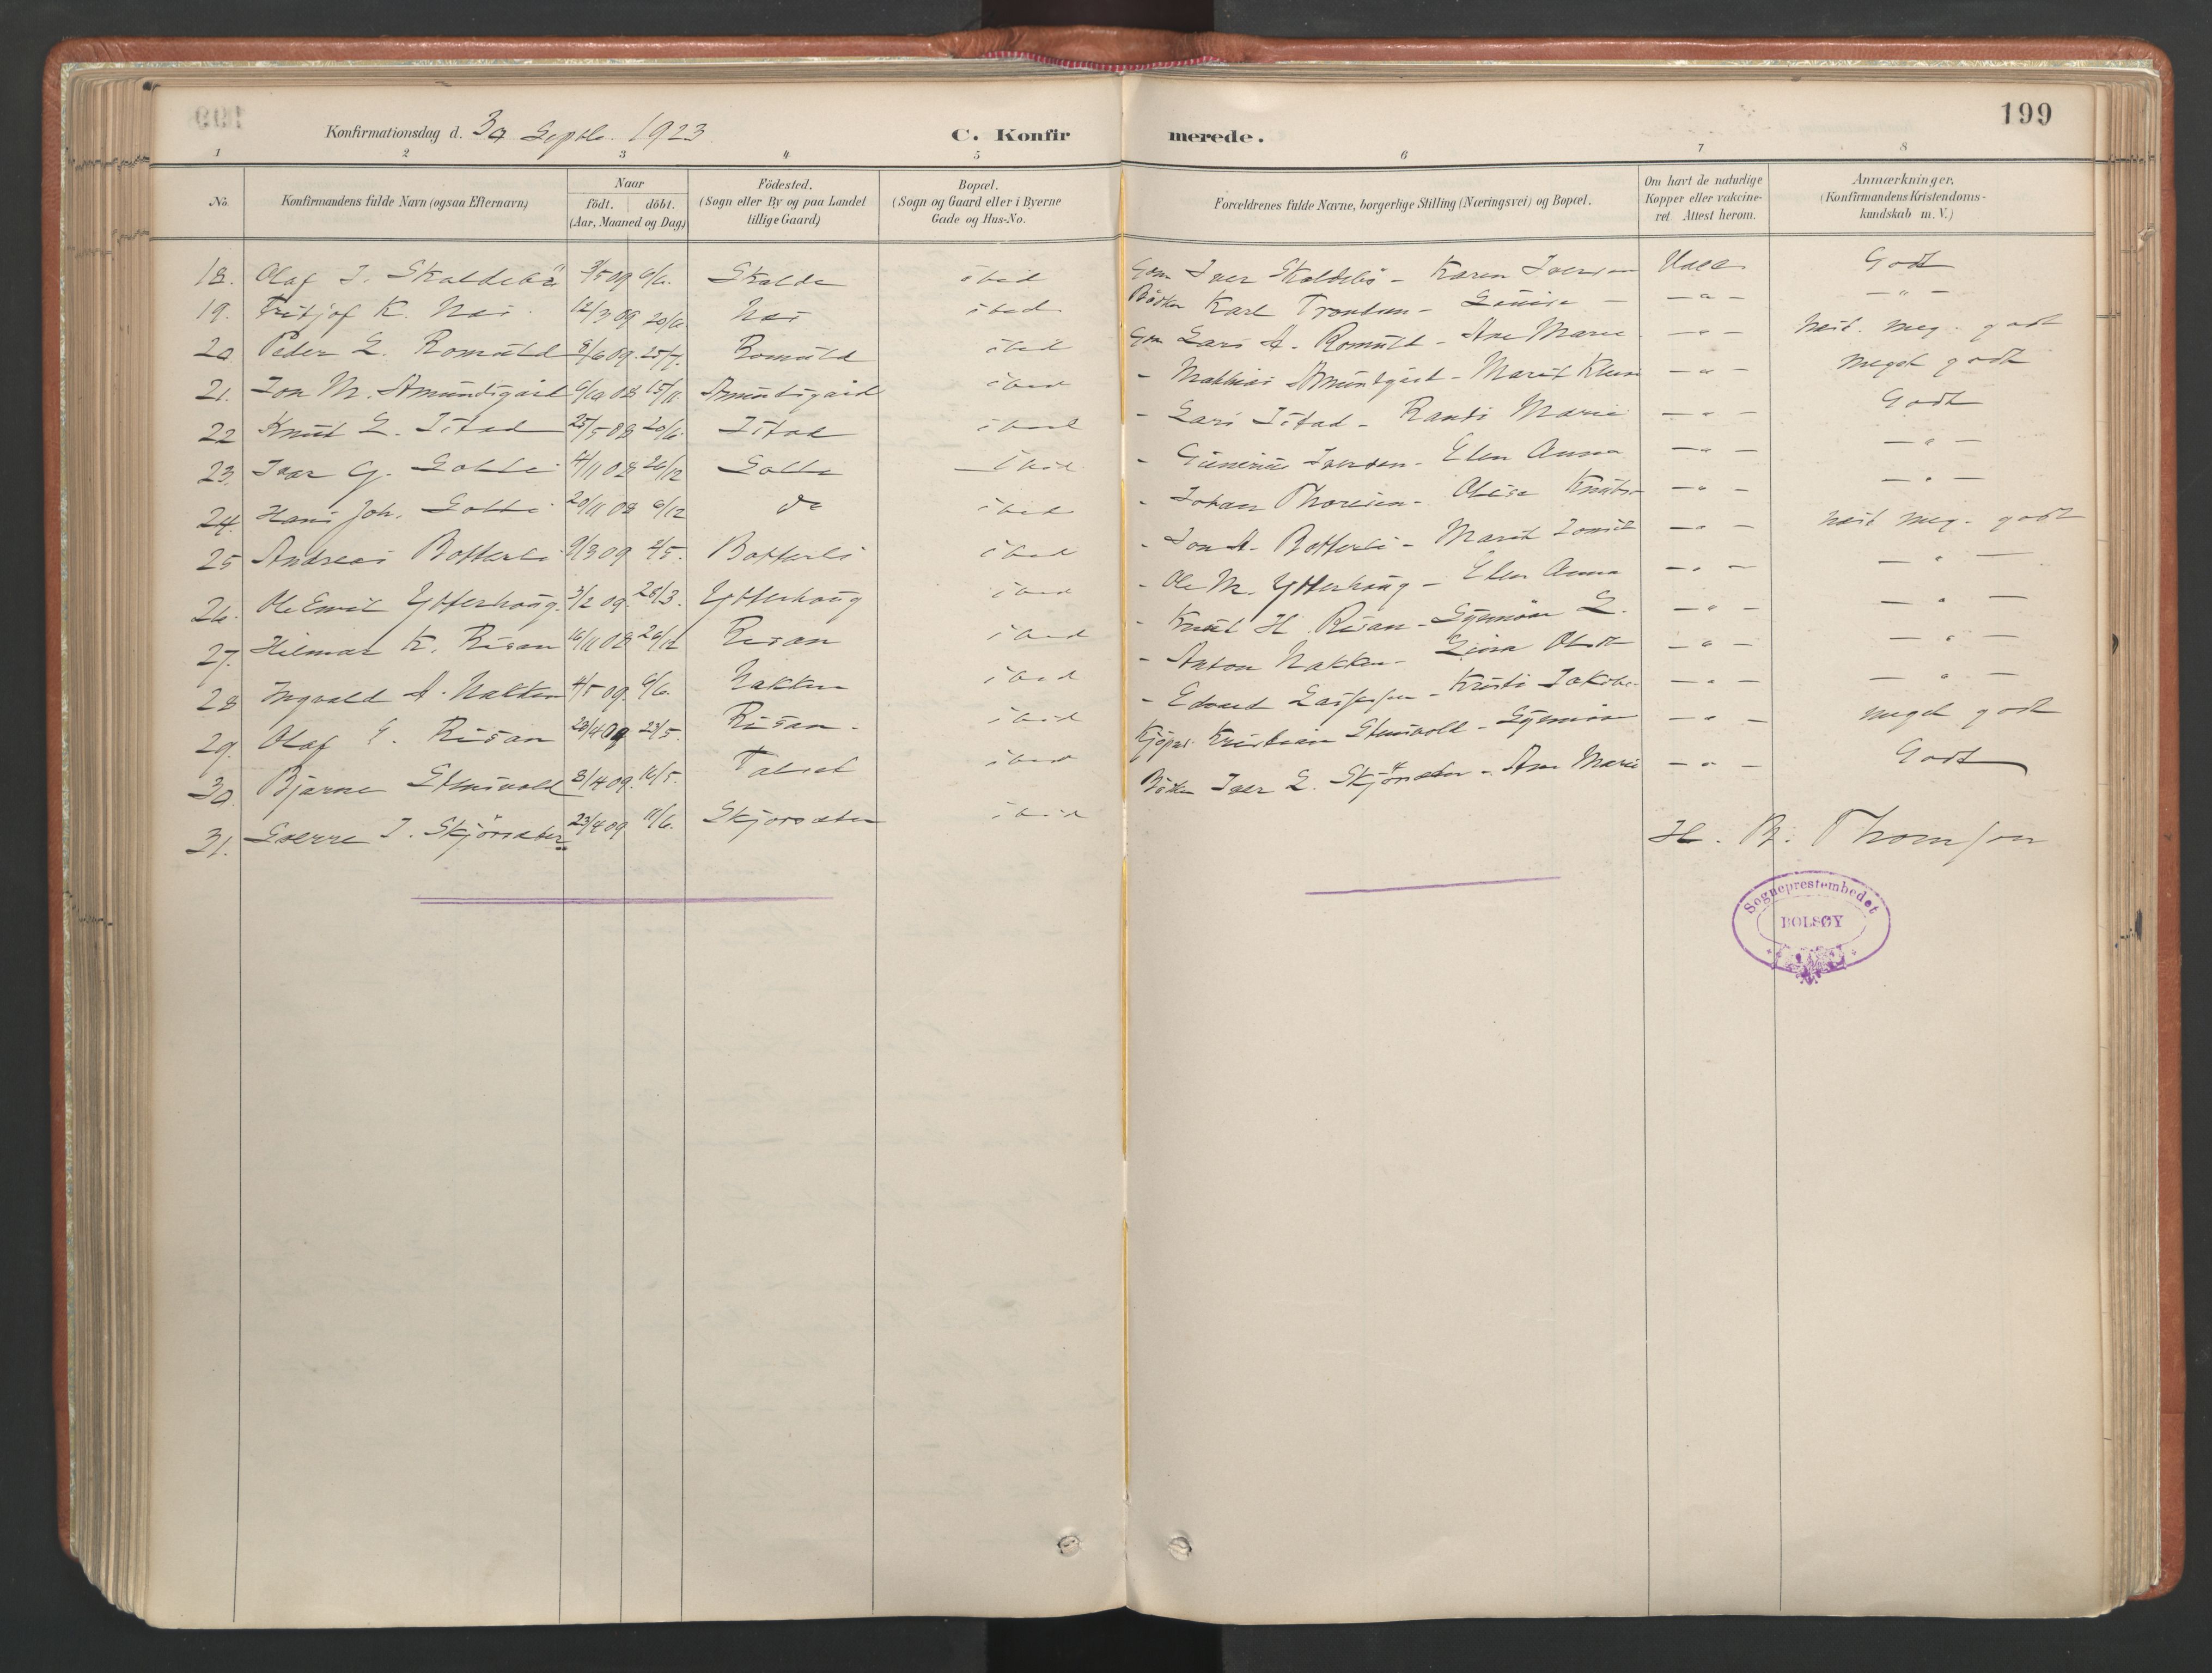 199
Konfirmationsdag d. 30 Septbr. 1923.
C. Konfirmerede.
1 2 3 4 5 6 7 8
No.
Konfirmandens fulde Navn (ogsaa Efternavn)
Naar
födt. döbt.
(Aar, Maaned og Dag)
Födested.
(Sogn eller By og paa Landet
tillige Gaard)
Bopæl.
(Sogn og Gaard eller i Byerne
Gade og Hus-No.
Forældrenes fulde Navne, borgerlige Stilling (Næringsvei) og Bopæl.
Om havt de naturlige
Kopper eller vakcine-
ret. Attest herom.
Anmærkninger.
(Konfirmandens Kristendoms-
kundskab m. V.)
18. Olaf I. Skaldebö 3/5 09 6/6. Skalde ibid Gm Iver Skaldebö - Karen Iversen Vacc. Godt
19. Fritjof K. Nes 12/3 09 20/6. Nes ibid Bödker Karl Trondsen - Louise - - " - - " -
20. Peder L. Romuld 8/6 09. 25/7. Romuld ibid Gm Lars A. Romuld - Ane Marie - " - næst. meg. godt
21. Jon M. Amundsgård 6/10 08 15/11 Amundsgård ibid - Mathias Amundgård - Marit - " - meget godt
22 Knut L. Istad 25/5 08 20/6. Istad ibid - Lars Istad - Randi Marie - " - Godt
23. Ivar G. Solli 4/11 08 26/12 ibid - Iversen - Elen Anna - " - - " -
24. Hans Joh. 20/11 08 6/12 do ibid - Johan Thoresen - Knutsd. - " - - " -
25 Andreas Botterli 9/3 09 2/5. Botterli ibid - Jon A. Botterli - Marit - " - næst meg. godt
26. Ole Emil Ytterhaug. 3/2 09. 28/3. Ytterhaug ibid - Ole M. Ytterhaug - Elen Anna - " - - " -
27. Hilmar K. Risan 16/11 08 26/12 Risan ibid - Knut H. Risan - L. - " - - " -
28 Ingvald A. Nakken 4/5 09 6/6. Nakken ibid - Anton Nakken - Olsdt - " - - " -
29. Olaf E. Risan 28/4 09 23/5. Risan. ibid - Edvard - Kristi - " - - " -
30. Bjarne Stenvold 8/4 09. 16/5. Talset ibid Kjöpm. Kristian Stenvold - - " - meget godt
31. Sverre I. Skjörsæter 23/4 09 11/6. Skjorsæter ibid Bödker Iver L. Skjörsæter - Ane Marie - " - Godt
H. B. Thomsen
Sogneprestembedet
BOLSØY